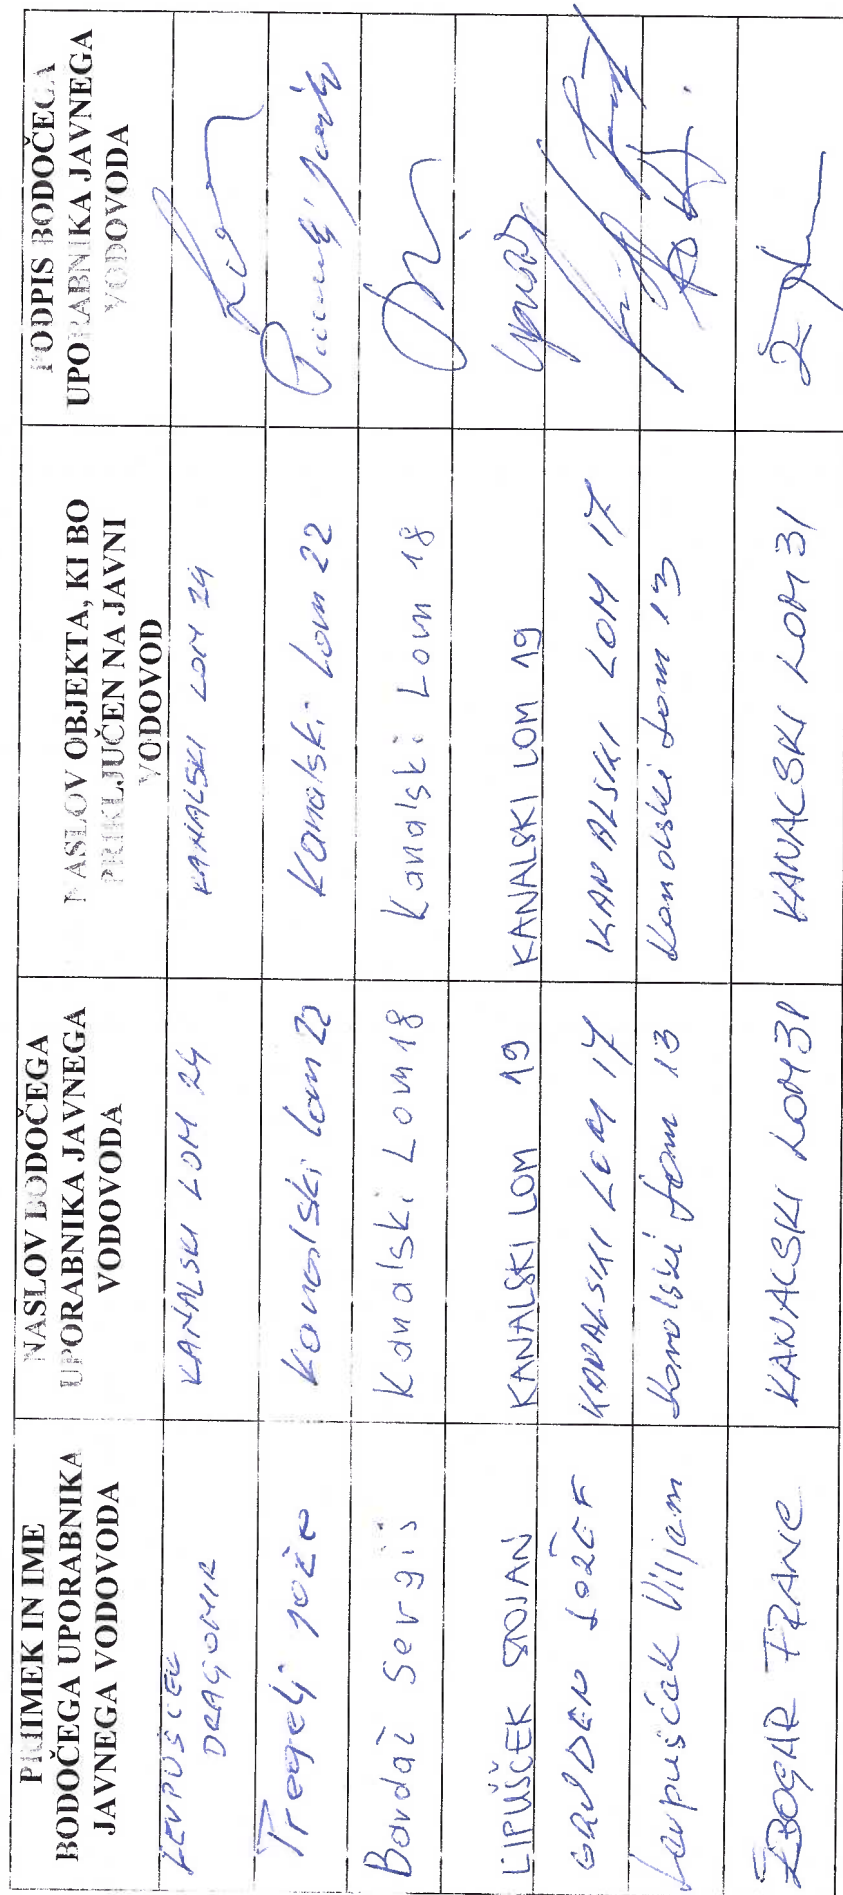 PRIIMEK IN IME
BODOČEGA UPORABNIKA
JAVNEGA VODOVODA
NASLOV BODOČEGA
UPORABNIKA JAVNEGA
VODOVODA
NASLOV OBJEKTA, KI BO
PRIKLJUČEN NA JAVNI
VODOVOD
PODPIS BODOČEGA
UPORABNIKA JAVNEGA
VODOVODA
LEVPUŠČEK
DRAGOMIR
KANALSKI LOM 24
KANALSKI LOM 24
Pregelj Jože
Kanalski Lom 22
Kanalski Lom 22
Bavdaž Sergij
Kanalski Lom 18
Kanalski Lom 18
LIPUŠČEK STOJAN
KANALSKI LOM 19
KANALSKI LOM 19
GRUDEN JOŽEF
KANALSKI LOM 17
KANALSKI LOM 17
Levpušček Viljem
Kanalski Lom 13
Kanalski Lom 13
ŽBOGAR FRANC
KANALSKI LOM 31
KANALSKI LOM 31